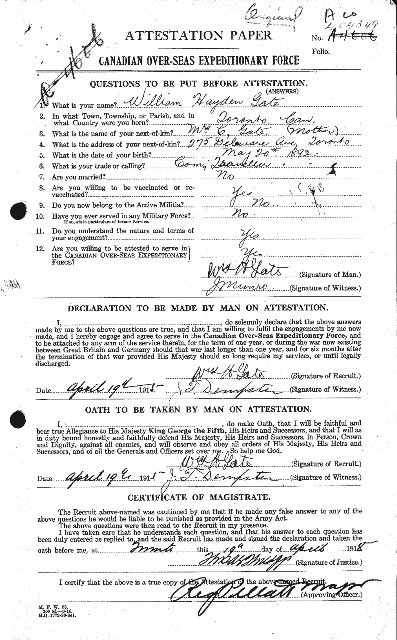 Original
A Co
ATTESTATION PAPER
No.
Folio.
CANADIAN OVER-SEAS EXPEDITIONARY FORCE
QUESTIONS TO BE PUT BEFORE ATTESTATION.
(ANSWERS)
1. What is your name? William Hayden Gate
2. In what Town, Township, or Parish, and in what Country were you born? Toronto Can.
3. What is the name of your next-of-kin? Mrs C. Gate (Mother)
4. What is the address of your next-of-kin? 275 Delaware Ave, Toronto
5. What is the date of your birth? May 20th 1892
6. What is your trade or calling? Com. Traveller
7. Are you married? No
8. Are you willing to be vaccinated or re-vaccinated? Yes
9. Do you now belong to the Active Militia? No
10. Have you ever served in any Military Force? No
If so, state particulars of former Service.
11. Do you understand the nature and terms of your engagement? Yes
12. Are you willing to be attested to serve in the CANADIAN OVER-SEAS EXPEDITIONARY FORCE? Yes
Wm H Gate (Signature of Man.)
(Signature of Witness.)
DECLARATION TO BE MADE BY MAN ON ATTESTATION.
I, do solemnly declare that the above answers
made by me to the above questions are true, and that I am willing to fulfil the engagements by me now
made, and I hereby engage and agree to serve in the Canadian Over-Seas Expeditionary Force, and
to be attached to any arm of the service therein, for the term of one year, or during the war now existing
between Great Britain and Germany should that war last longer than one year, and for six months after
the termination of that war provided His Majesty should so long require my services, or until legally
discharged.
Wm H Gate (Signature of Recruit.)
Date April 19th 1915 J. T. Dempster (Signature of Witness.)
OATH TO BE TAKEN BY MAN ON ATTESTATION.
I, do make Oath, that I will be faithful and
bear true Allegiance to His Majesty King George the Fifth, His Heirs and Successors, and that I will as
in duty bound honestly and faithfully defend His Majesty, His Heirs and Successors, in Person, Crown
and Dignity, against all enemies, and will observe and obey all orders of His Majesty, His Heirs and
Successors, and of all the Generals and Officers set over me. So help me God.
Wm H Gate (Signature of Recruit.)
Date April 19th 1915 J. T. Dempster (Signature of Witness.)
CERTIFICATE OF MAGISTRATE.
The Recruit above-named was cautioned by me that if he made any false answer to any of the
above questions he would be liable to be punished as provided in the Army Act.
The above questions were then read to the Recruit in my presence.
I have taken care that he understands each question, and that his answer to each question has
been duly entered as replied to, and the said Recruit has made and signed the declaration and taken the
oath before me, at Toronto this 19th day of April 1915
(Signature of Justice.)
I certify that the above is a true copy of the Attestation of the above-named Recruit.
Reg Pellatt Major (Approving Officer.)
M. F. W. 23.